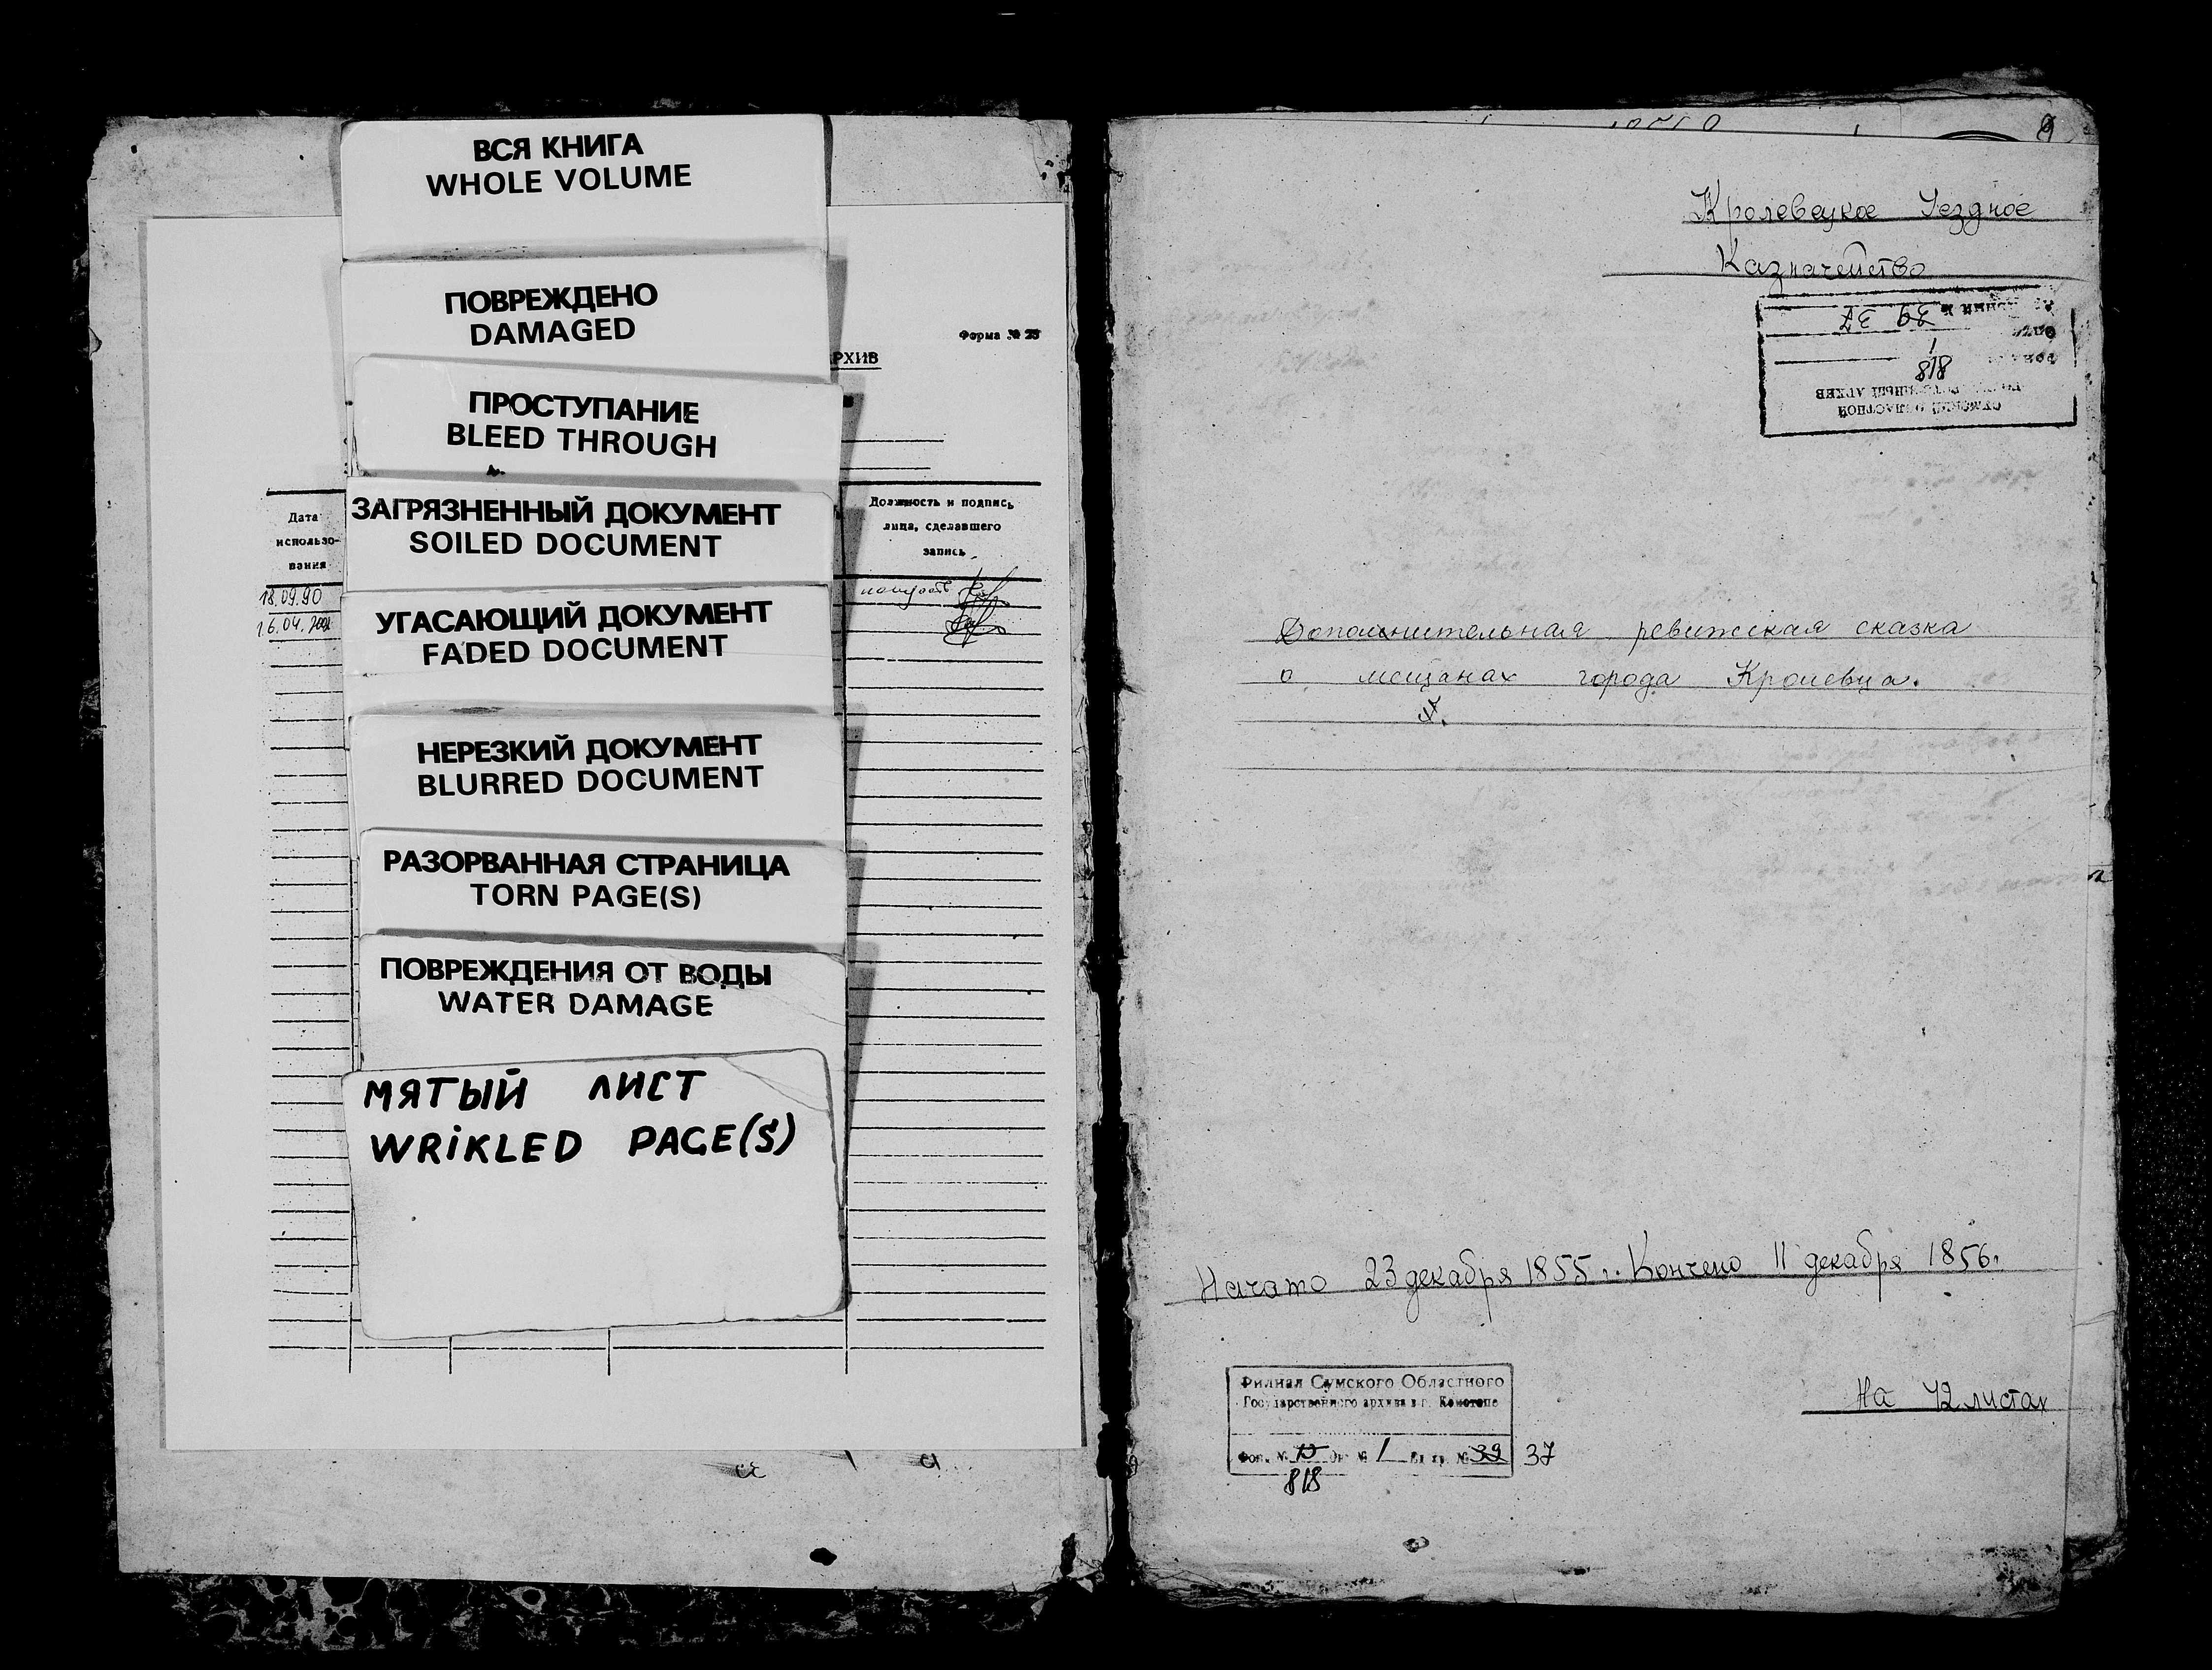 ВСЯ КНИГА
WHOLE VOLUME
ПОВРЕЖДЕНО
DAMAGED
ПРОСТУПАНИЕ
BLEED THROUGH
ЗАГРЯЗНЕННЫЙ ДОКУМЕНТ
SOILED DOCUMENT
УГАСАЮЩИЙ ДОКУМЕНТ
FADED DOCUMENT
НЕРЕЗКИЙ ДОКУМЕНТ
BLURRED DOCUMENT
РАЗОРВАННАЯ СТРАНИЦА
TORN PAGE(S)
ПОВРЕЖДЕНИЯ ОТ ВОДЫ
WATER DAMAGE
МЯТЫЙ ЛИСТ
WRiKLED PAGE(S)
Форма № 23
РХИВ
Дата
использо-
вания
Должность и подпись
лица, сделавшего
запись
18.09.90
16.04.
Кролевецкое Уездное
Казначейство
39 37
1
818
СУМСКИЙ ОБЛАСТНОЙ
АРХИВ
Дополнительная ревижская сказка
о мещанах города Кролевца.
Начато 23 декабря 1855 г. Кончено 11 декабря 1856г
На 42 листах
Филиал Сумского Областного
Государственного архива в г. Конотопе
Фон. № Оп № 1 Ед хр. № 39 37
818